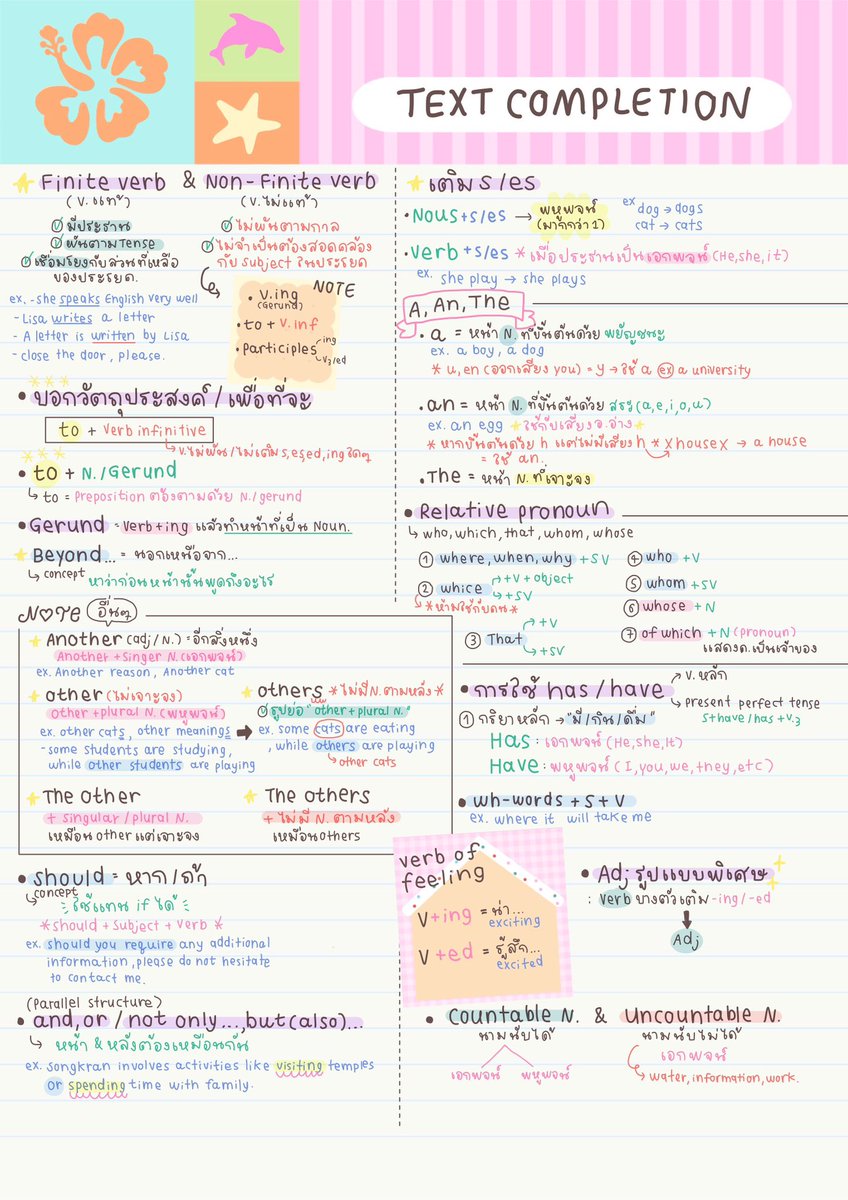 TEXT COMPLETION
Finite verb & Non-Finite verb
(v. แท้) (v. ไม่แท้)
มีประธาน
ผันตามTense
เชื่อมโยงกับส่วนที่เหลือ
ของประโยค.
ไม่ผันตามกาล
ไม่จำเป็นต้องสอดคล้อง
กับ subject ในประโยค
ex. -she speaks English very well
- Lisa writes a letter
- A letter is written by Lisa
- close the door, please.
NOTE
• V.ing
(Gerund)
• to + V. inf
• participles ing
v3/ed
• บอกวัตถุประสงค์ / เพื่อที่จะ
to + verb infinitive
v.ไม่ผัน/ไม่เติม s,es,ed,ing ใดๆ
• to + N./Gerund
to = Preposition ต้องตามด้วย N./gerund
• Gerund = verb+ing แล้วทำหน้าที่เป็น Noun.
Beyond... = นอกเหนือจาก...
concept หาว่าก่อนหน้านั้นพูดถึงอะไร
NOTE อื่นๆ
Another (adj/N.) = อีกสิ่งหนึ่ง
Another + singer N. (เอกพจน์)
ex. Another reason, Another cat
other (ไม่เจาะจง)
other + plural N. (พหูพจน์)
ex. other cats, other meanings
- some students are studying,
while other students are playing
others *ไม่มี N. ตามหลัง*
รูปย่อ "other + plural N."
ex. some cats are eating
, while others are playing
other cats
The other
+ singular/plural N.
เหมือน other แต่เจาะจง
The others
+ ไม่มี N. ตามหลัง
เหมือน others
• should = หาก / ถ้า
concept
ใช้แทน if ได้
*should + subject + verb*
ex. should you require any additional
information, please do not hesitate
to contact me.
(Parallel structure)
• and, or / not only..., but (also)...
หน้า & หลังต้องเหมือนกัน
ex. songkran involves activities like visiting temples
or spending time with family.
เติม s/es
• Nous + s/es → พหูพจน์
(มากกว่า 1)
ex dog → dogs
cat → cats
• verb + s/es * เมื่อประธานเป็นเอกพจน์ (He, she, it)
ex. she play → she plays
A, An, The
• a = หน้า N. ที่ขึ้นต้นด้วย พยัญชนะ
ex. a boy, a dog
* u, en (ออกเสียง you) = y → ใช้ a ex a university
• an = หน้า N. ที่ขึ้นต้นด้วย สระ (a, e, i, o, u)
ex. an egg *ใช้กับเสียง อ.อ่าง*
* หากขึ้นต้นด้วย h แต่ไม่มีเสียง h * x house x → a house
= ใช้ an.
• The = หน้า N. ที่เจาะจง
• Relative pronoun
who, which, that, whom, whose
① where, when, why + SV
② whice +V + object
+SV
*ห้ามใช้กับคน*
③ That +V
+SV
④ who +V
⑤ whom +SV
⑥ whose +N
⑦ of which +N (pronoun)
แสดงค.เป็นเจ้าของ
• การใช้ has / have
v. หลัก
present perfect tense
S+have/has+V.3
① กริยาหลัก → "มี/กิน/ดื่ม"
Has : เอกพจน์ (He, she, It)
Have : พหูพจน์ (I, you, we, they, etc)
• wh-words + S + V
ex. where it will take me
verb of
feeling
V+ing = น่า...
exciting
V+ed = รู้สึก...
excited
• Adj รูปแบบพิเศษ
: verb บางตัวเติม -ing/-ed
Adj
• Countable N. & Uncountable N.
นามนับได้ นามนับไม่ได้
เอกพจน์ พหูพจน์
เอกพจน์
water, information, work.